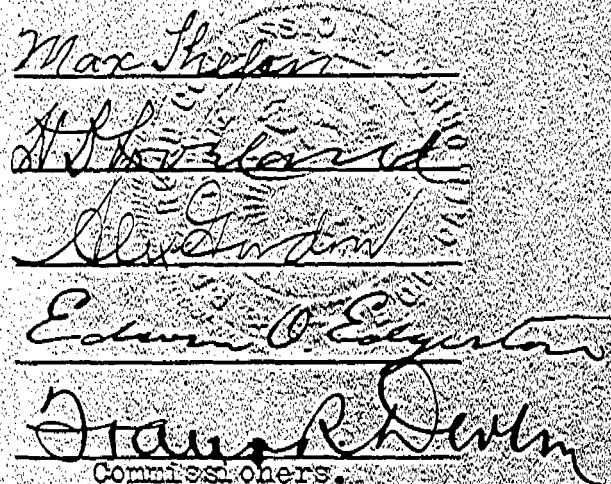 Max Thelen
H. D. Loveland
Alex Gordon
Edwin O. Edgerton
Frank R. Devlin
Commissioners.